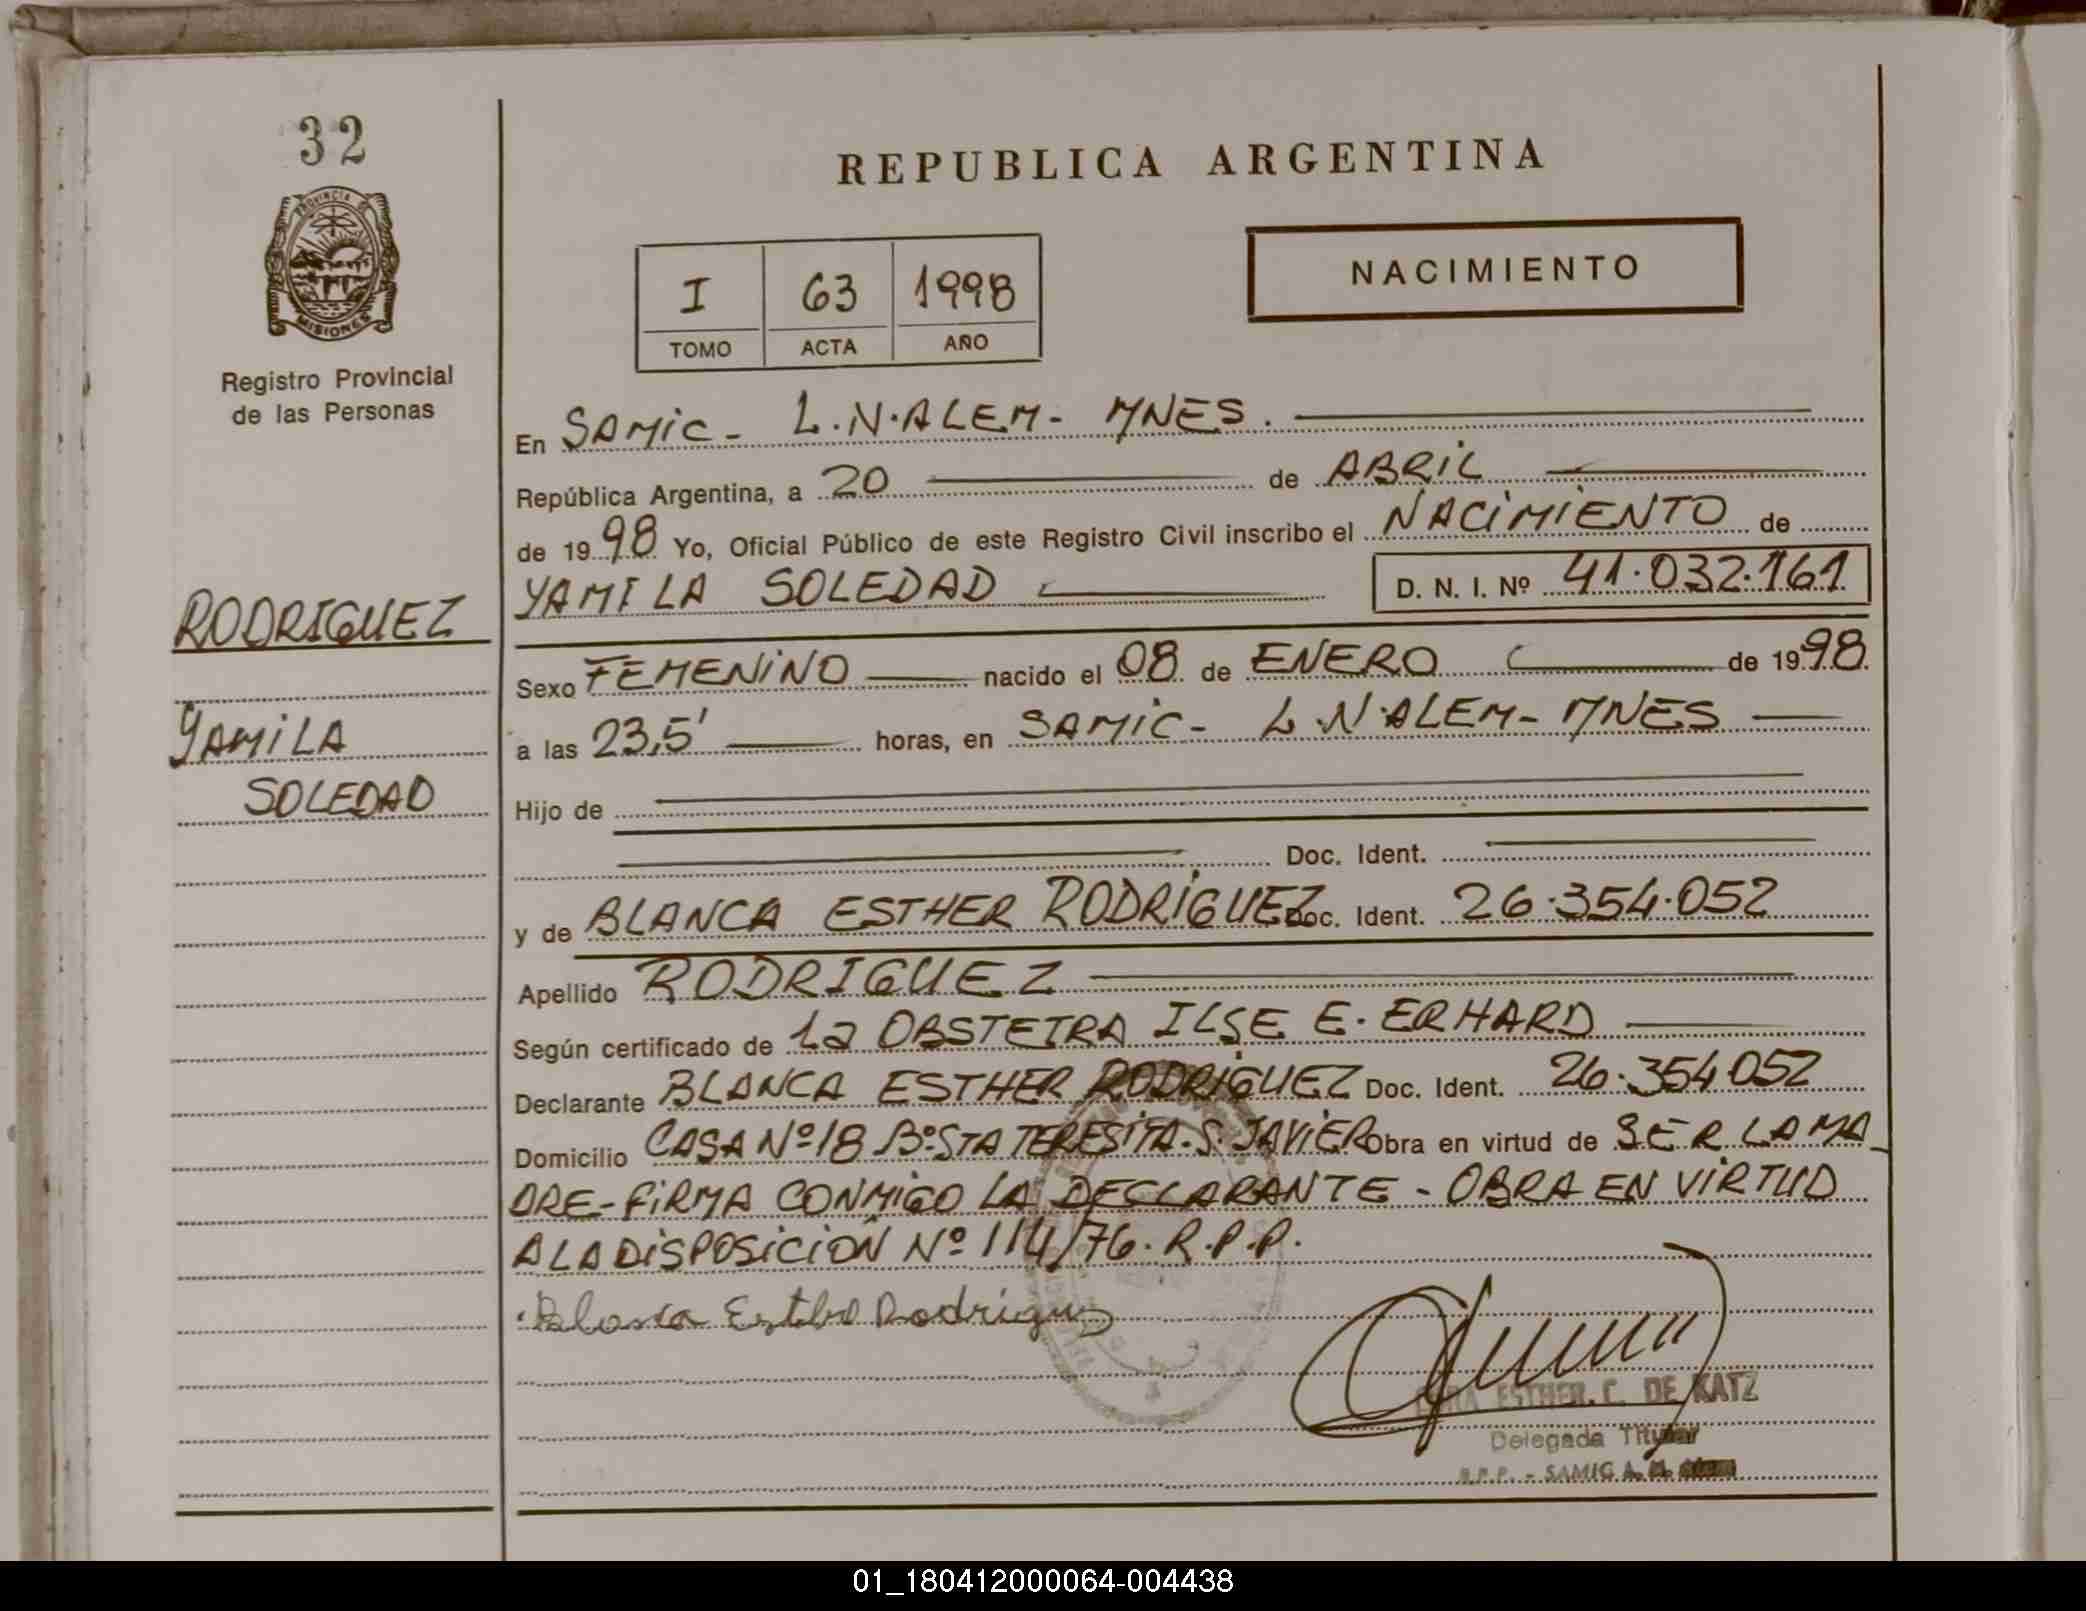 32
PROVINCIA DE
MISIONES
Registro Provincial
de las Personas
RODRIGUEZ
YAMILA
SOLEDAD
REPUBLICA ARGENTINA
I 63 1998
TOMO ACTA AÑO
NACIMIENTO
En SAMIC - L.N.ALEM - MNES.
República Argentina, a 20 de ABRIL
de 1998 Yo, Oficial Público de este Registro Civil inscribo el NACIMIENTO de
YAMILA SOLEDAD D. N. I. Nº 41.032.161
Sexo FEMENINO nacido el 08 de ENERO de 1998
a las 23,5' horas, en SAMIC - L.N.ALEM - MNES
Hijo de
Doc. Ident.
y de BLANCA ESTHER RODRIGUEZ Doc. Ident. 26.354.052
Apellido RODRIGUEZ
Según certificado de La OBSTETRA ILSE E. ERHARD
Declarante BLANCA ESTHER RODRIGUEZ Doc. Ident. 26.354.052
Domicilio CASA Nº 18 Bº STA TERESITA - S. JAVIER Obra en virtud de SER LA MA-
DRE - FIRMA CONMIGO LA DECLARANTE - OBRA EN VIRTUD
A LA DISPOSICION Nº 114/76. R.P.P.
Blanca Esther Rodriguez
ESTHER. C. DE KATZ
Delegada Titular
R.P.P. - SAMIC
01_180412000064-004438